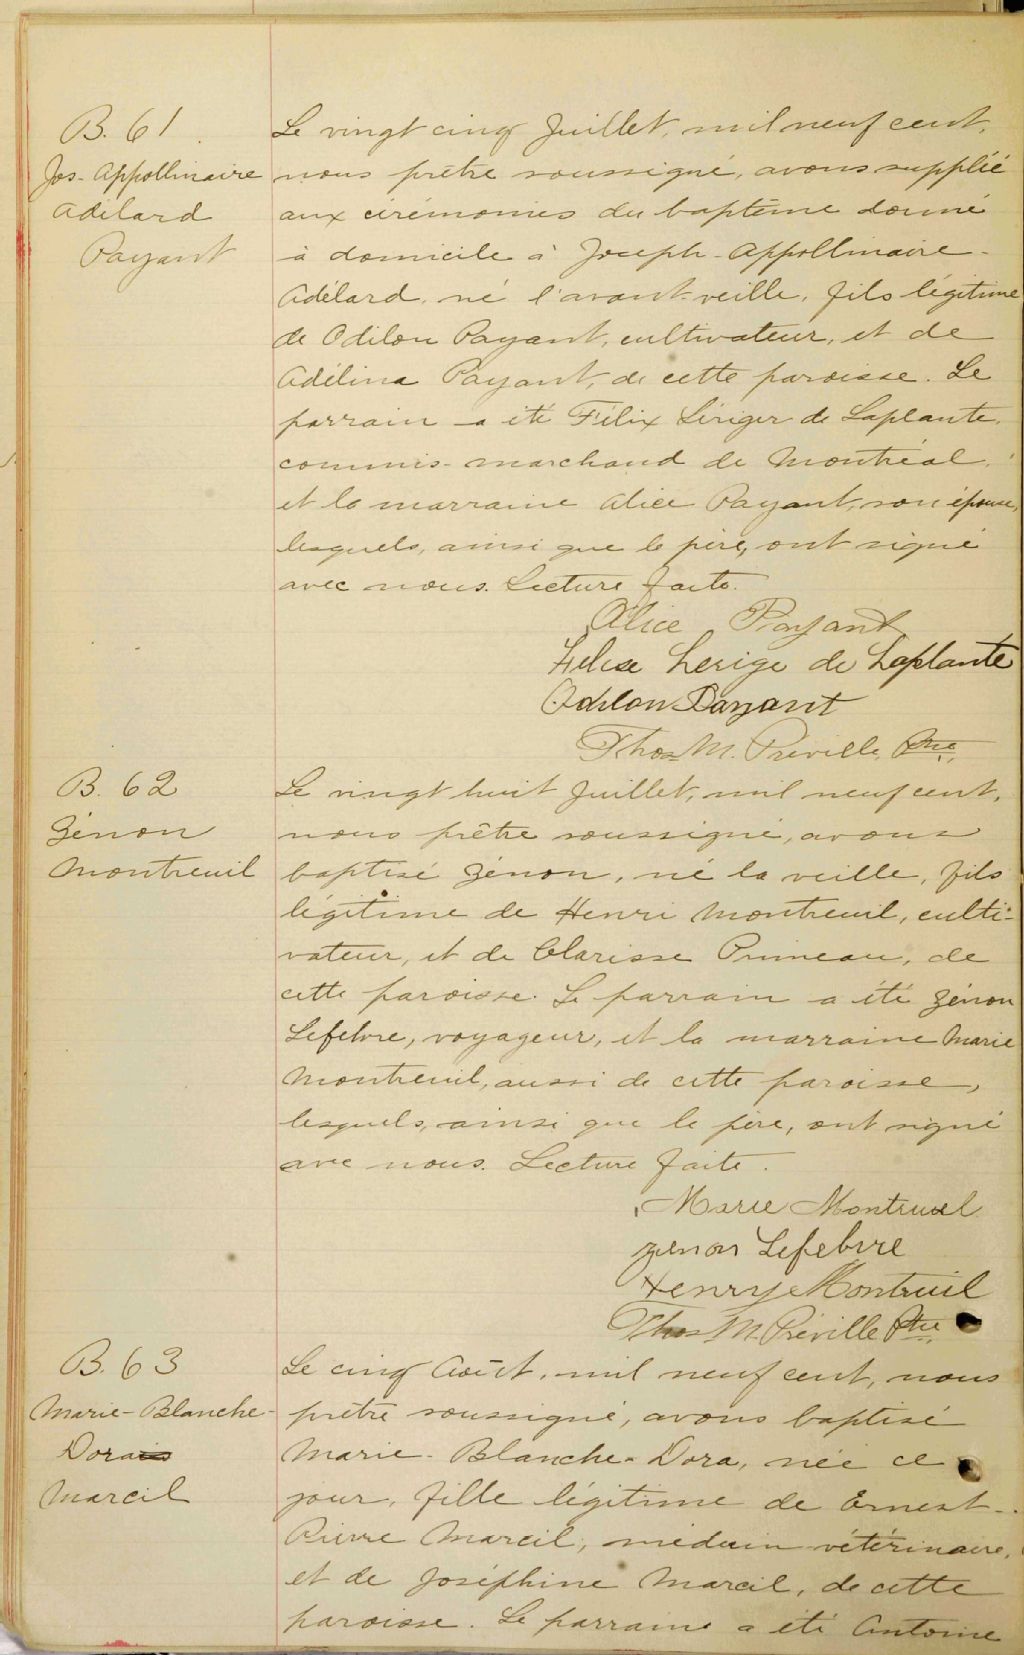 B. 61
Jos-Appollinaire
Adélard
Payant
Le vingt cinq Juillet, mil neuf cent,
nous prêtre soussigné, avons supplié
aux cérémonies du baptême donné
à domicile à Joseph-Appollinaire-
Adélard, né l'avant-veille, fils légitime
de Odilon Payant, cultivateur, et de
Adélina Payant, de cette paroisse. Le
parrain a été Félix Lériger de Laplante,
commis-marchand de Montréal,
et la marraine Alice Payant, son épouse,
lesquels, ainsi que le père, ont signé
avec nous. Lecture faite.
Alice Payant
Felix Lerige de Laplante
Odilon Payant
Thos M. Préville, Ptre,
B. 62
Zénon
Montreuil
Le vingt huit Juillet, mil neuf cent,
nous prêtre soussigné, avons
baptisé Zénon, né la veille, fils
légitime de Henri Montreuil, culti-
vateur, et de Clarisse Primeau, de
cette paroisse. Le parrain a été Zénon
Lefebvre, voyageur, et la marraine Marie
Montreuil, aussi de cette paroisse,
lesquels, ainsi que le père, ont signé
avec nous. Lecture faite.
Marie Montreuil
Zenon Lefebvre
Henry Montreuil
Thos M. Préville Ptre,
B. 63
Marie-Blanche-
Dora
Marcil
Le cinq Août, mil neuf cent, nous
prêtre soussigné, avons baptisé
Marie-Blanche-Dora, née ce
jour, fille légitime de Ernest-
Pierre Marcil, médecin vétérinaire,
et de Joséphine Marcil, de cette
paroisse. Le parrain a été Antoine